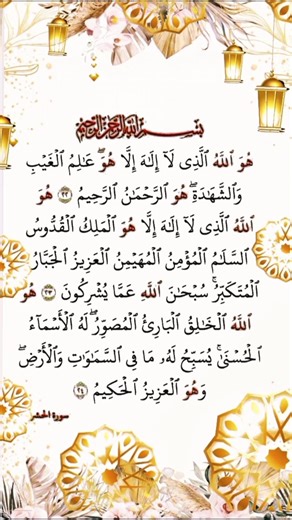 بسم الله الرحمن الرحيم
هُوَ ٱللَّهُ ٱلَّذِى لَآ إِلَٰهَ إِلَّا هُوَۖ عَٰلِمُ ٱلْغَيْبِ
وَٱلشَّهَٰدَةِۖ هُوَ ٱلرَّحْمَٰنُ ٱلرَّحِيمُ ٢٢ هُوَ
ٱللَّهُ ٱلَّذِى لَآ إِلَٰهَ إِلَّا هُوَ ٱلْمَلِكُ ٱلْقُدُّوسُ
ٱلسَّلَٰمُ ٱلْمُؤْمِنُ ٱلْمُهَيْمِنُ ٱلْعَزِيزُ ٱلْجَبَّارُ
ٱلْمُتَكَبِّرُۚ سُبْحَٰنَ ٱللَّهِ عَمَّا يُشْرِكُونَ ٢٣ هُوَ
ٱللَّهُ ٱلْخَٰلِقُ ٱلْبَارِئُ ٱلْمُصَوِّرُۖ لَهُ ٱلْأَسْمَآءُ
ٱلْحُسْنَىٰۚ يُسَبِّحُ لَهُۥ مَا فِى ٱلسَّمَٰوَٰتِ وَٱلْأَرْضِۖ
وَهُوَ ٱلْعَزِيزُ ٱلْحَكِيمُ ٢٤
سورة الحشر